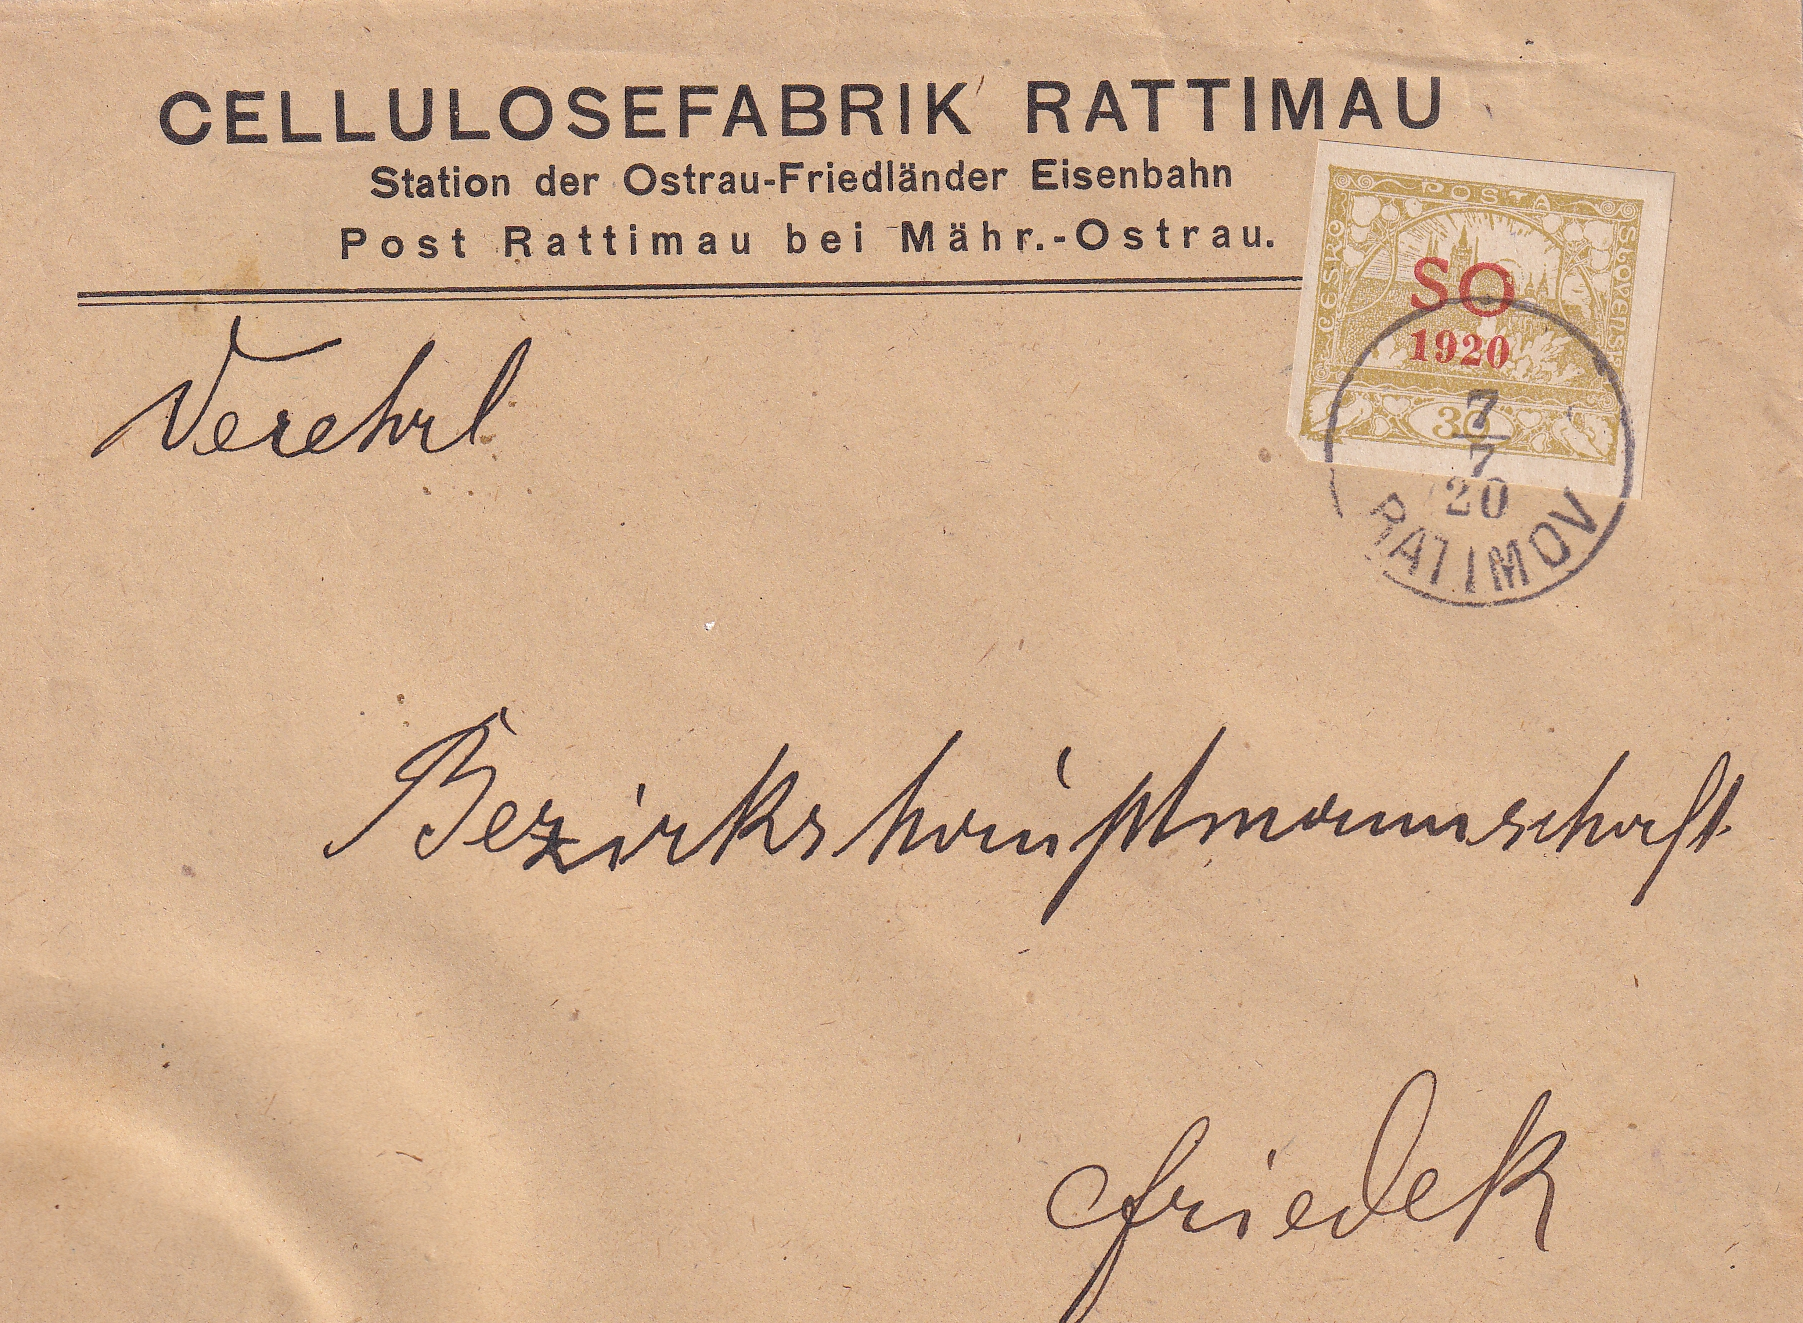 CELLULOSEFABRIK RATTIMAU
Station der Ostrau-Friedländer Eisenbahn
Post Rattimau bei Mähr.-Ostrau.
POSTA
ČESKO
SLOVENSKÁ
SO
1920
30
7
7
20
RATIMOV
Verehrl
Bezirkshauptmannschaft
Friedek